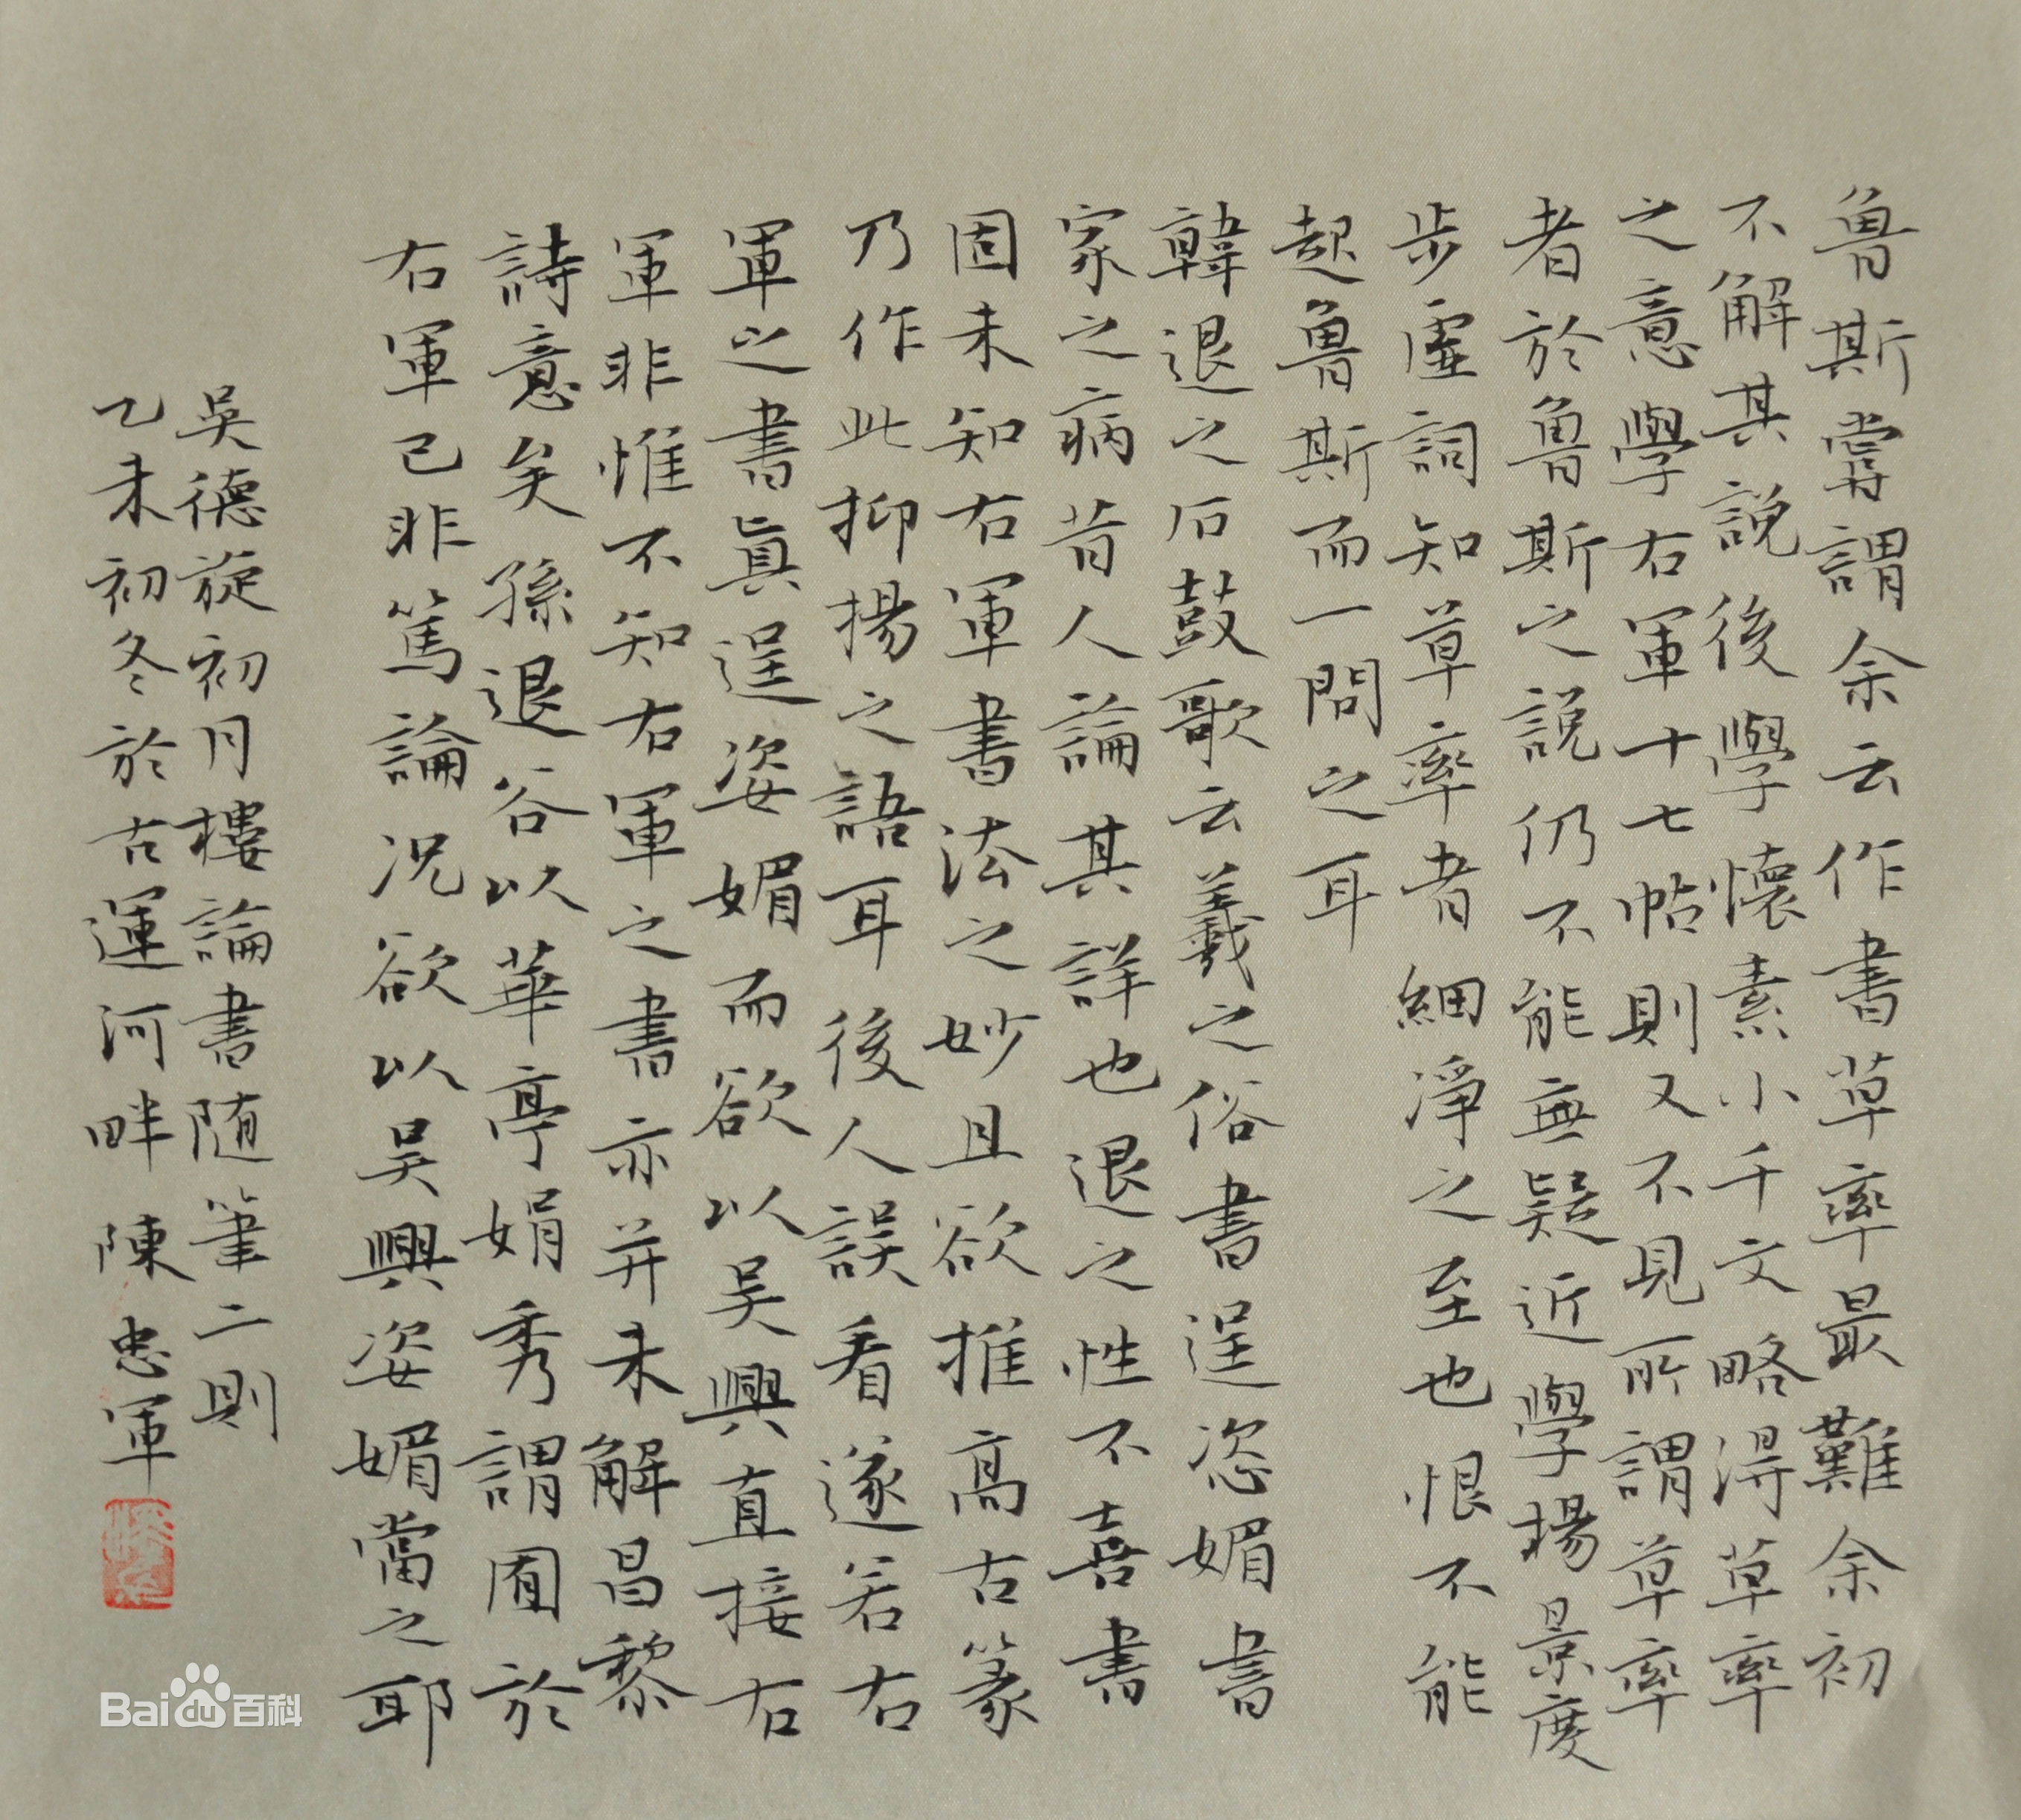 魯斯嘗謂余云作書草率最難余初
不解其說後學懷素小千文略得草率
之意學右軍十七帖則又不見所謂草率
者於魯斯之說仍不能無疑近學楊景度
步虛詞知草率者細淨之至也恨不能
起魯斯而一問之耳
韓退之石鼓歌云羲之俗書逞恣媚書
家之病昔人論其詳也退之性不喜書
固未知右軍書法之妙且欲推高古篆
乃作此抑揚之語耳後人誤看遂若右
軍之書真逞姿媚而欲以吴興直接右
軍非惟不知右軍之書亦并未解昌黎
詩意矣孫退谷以華亭娟秀謂囿於
右軍已非篤論况欲以吴興姿媚當之耶
吳德旋初月樓論書随筆二則
乙未初冬於古運河畔陳忠軍
Bai百科